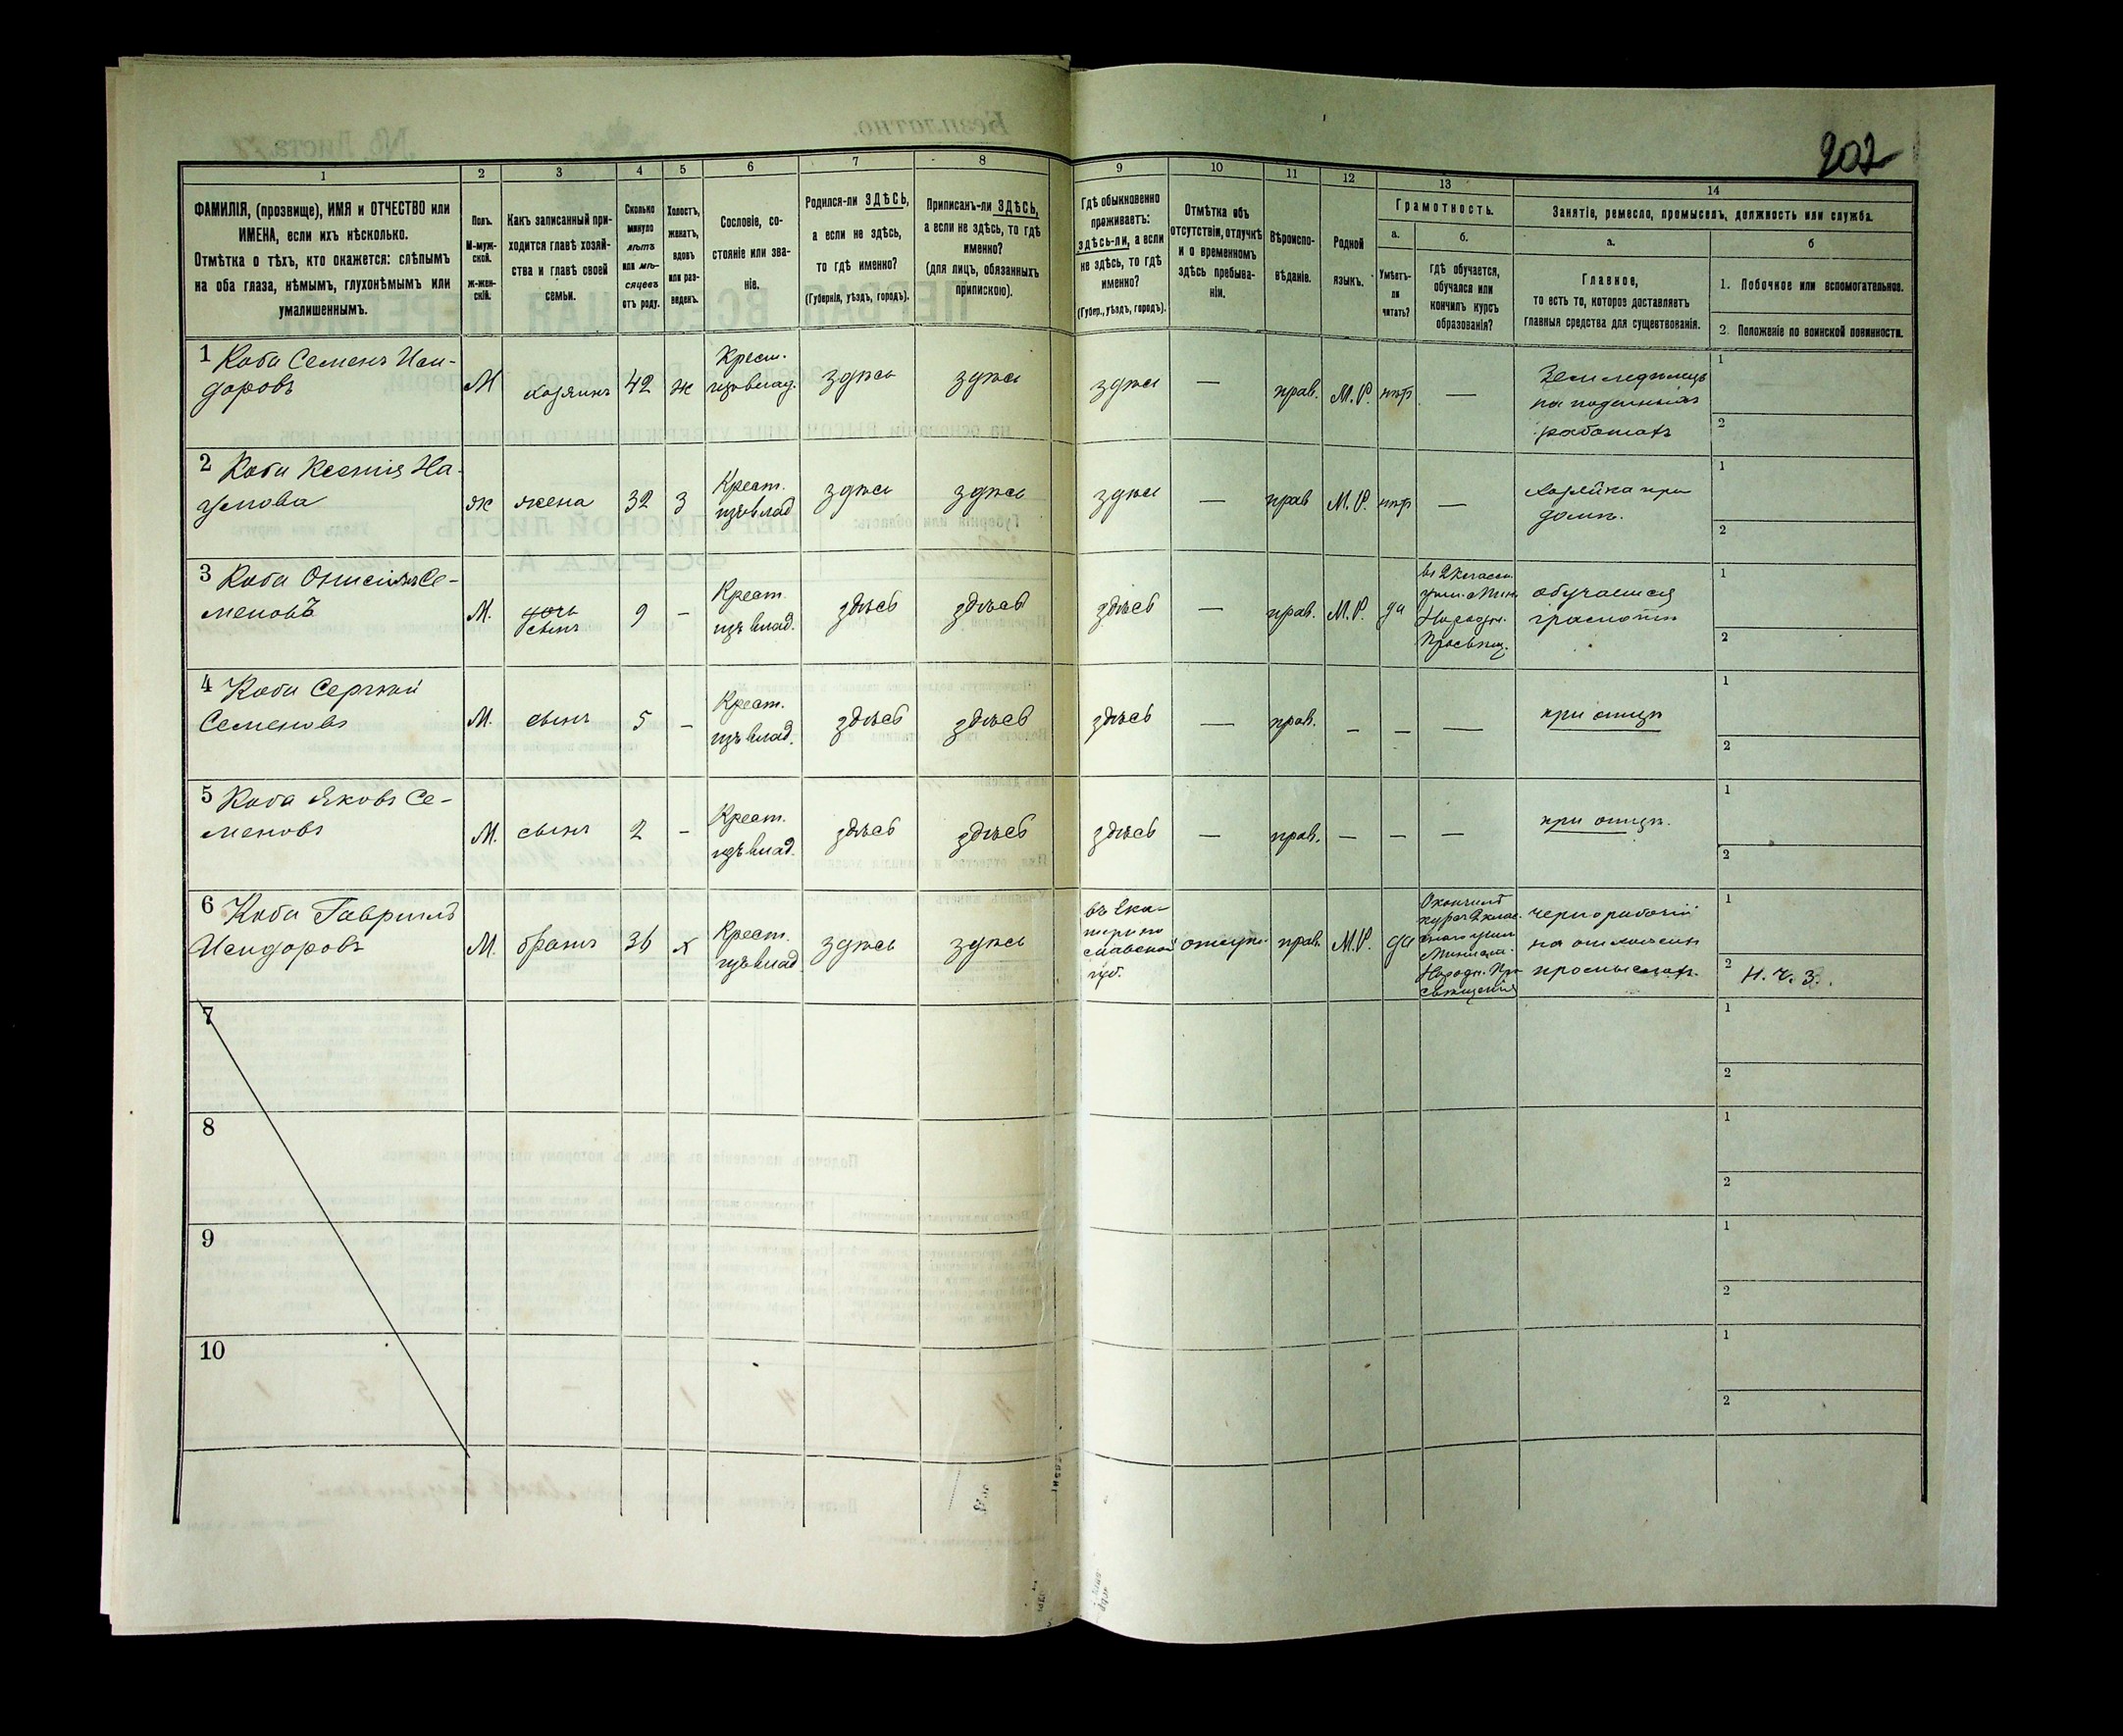 202
1
2
3
4
5
6
7
8
9
10
11
12
13
14
ФАМИЛІЯ, (прозвище), ИМЯ и ОТЧЕСТВО или
ИМЕНА, если ихъ нѣсколько.
Отмѣтка о тѣхъ, кто окажется: слѣпымъ
на оба глаза, нѣмымъ, глухонѣмымъ или
умалишеннымъ.
Полъ.
М-муж-
ской.
ж-жен-
скій.
Какъ записанный при-
ходится главѣ хозяй-
ства и главѣ своей
семьи.
Сколько
минуло
лѣтъ
или мѣ-
сяцевъ
отъ роду.
Холостъ,
женатъ,
вдовъ
или раз-
веденъ.
Сословіе, со-
стояніе или зва-
ніе.
Родился-ли ЗДѢСЬ,
а если не здѣсь,
то гдѣ именно?
(Губернія, уѣздъ, городъ).
Приписанъ-ли ЗДѢСЬ,
а если не здѣсь, то гдѣ
именно?
(для лицъ, обязанныхъ
припискою).
Гдѣ обыкновенно
проживаетъ:
здѣсь-ли, а если
не здѣсь, то гдѣ
именно?
(Губер., уѣздъ, городъ).
Отмѣтка объ
отсутствіи, отлучкѣ
и о временномъ
здѣсь пребыва-
ніи.
Вѣроиспо-
вѣданіе.
Родной
языкъ.
Грамотность.
а.
Умѣетъ-
ли
читать?
б.
гдѣ обучается,
обучался или
кончилъ курсъ
образованія?
Занятіе, ремесло, промыселъ, должность или служба.
а.
Главное,
то есть то, которое доставляетъ
главныя средства для существованія.
б
1. Побочное или вспомогательное.
2. Положеніе по воинской повинности.
1 Коба Семенъ Иси-
доровъ
М
хозяинъ
42
ж
Крест.
изъ влад.
здѣсь
здѣсь
здѣсь
—
прав.
М.Р.
нѣтъ
—
Земледѣлецъ
на поденныхъ
работахъ
1
2
2 Коба Ксенія На-
умова
ж
жена
32
з
Крест.
изъ влад
здѣсь
здѣсь
здѣсь
—
прав
М.Р.
нѣтъ
—
хозяйка при
домѣ.
1
2
3 Коба Онисимъ Се-
меновъ
М.
дочь
сынъ
9
-
Крест.
изъ влад.
здѣсь
здѣсь
здѣсь
—
прав.
М.Р.
да
въ 2 классн.
учил. Мин.
Народн.
Просвѣщ.
обучается
грамотѣ
1
2
4 Коба Сергѣй
Семеновъ
М.
сынъ
5
-
Крест.
изъ влад.
здѣсь
здѣсь
здѣсь
—
прав.
-
-
—
при отцѣ
1
2
5 Коба Яковъ Се-
меновъ
М.
сынъ
2
-
Крест.
изъ влад.
здѣсь
здѣсь
здѣсь
—
прав.
—
-
—
при отцѣ.
1
2
6 Коба Гавріилъ
Исидоровъ
М.
братъ
36
х
Крест.
изъ влад
здѣсь
здѣсь
въ Ека-
терино
славской
губ.
отсут.
прав.
М.Р.
да
Окончилъ
курсъ 2 клас-
снаго учил.
Министер.
Народн. Про
свѣщенія
чернорабочій
на отхожихъ
промыслахъ.
1
2 Н. Ч. З.
7
1
2
8
1
2
9
1
2
10
1
2